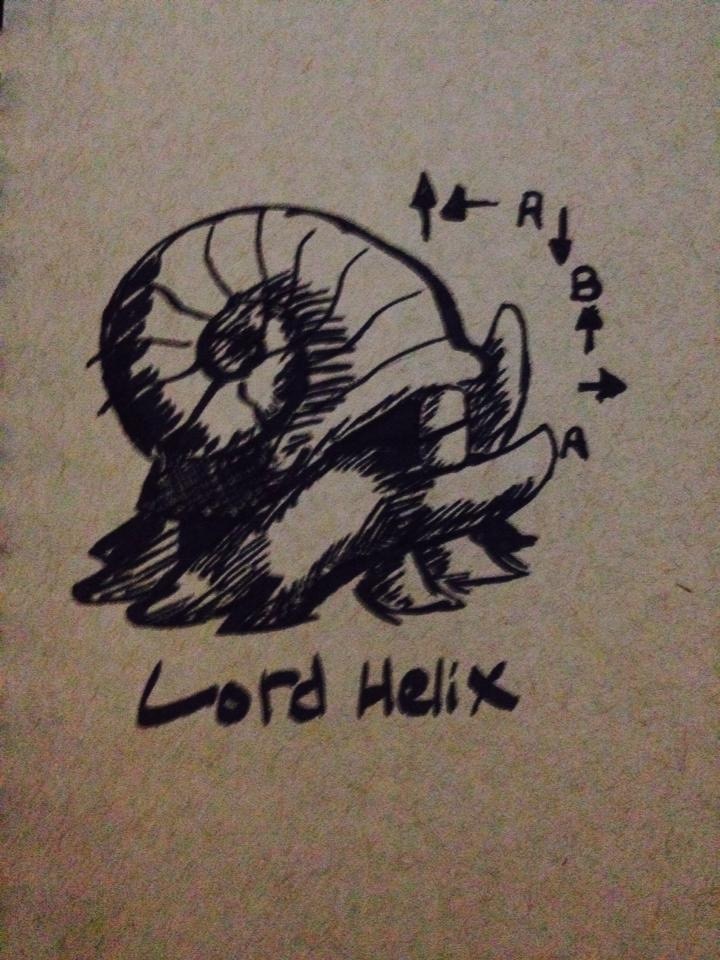 ↑ ← A ↓
B
↑
→
A
Lord Helix